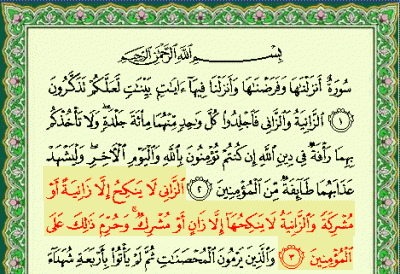 بِسْمِ اللَّهِ الرَّحْمَٰنِ الرَّحِيمِ
سُورَةٌ أَنزَلْنَٰهَا وَفَرَضْنَٰهَا وَأَنزَلْنَا فِيهَآ ءَايَٰتٍۭ بَيِّنَٰتٍ لَّعَلَّكُمْ تَذَكَّرُونَ
﴿١﴾ ٱلزَّانِيَةُ وَٱلزَّانِى فَٱجْلِدُوا۟ كُلَّ وَٰحِدٍ مِّنْهُمَا مِا۟ئَةَ جَلْدَةٍ ۖ وَلَا تَأْخُذْكُم
بِهِمَا رَأْفَةٌ فِى دِينِ ٱللَّهِ إِن كُنتُمْ تُؤْمِنُونَ بِٱللَّهِ وَٱلْيَوْمِ ٱلْءَاخِرِ ۖ وَلْيَشْهَدْ
عَذَابَهُمَا طَآئِفَةٌ مِّنَ ٱلْمُؤْمِنِينَ ﴿٢﴾ ٱلزَّانِى لَا يَنكِحُ إِلَّا زَانِيَةً أَوْ
مُشْرِكَةً وَٱلزَّانِيَةُ لَا يَنكِحُهَآ إِلَّا زَانٍ أَوْ مُشْرِكٌ ۚ وَحُرِّمَ ذَٰلِكَ عَلَى
ٱلْمُؤْمِنِينَ ﴿٣﴾ وَٱلَّذِينَ يَرْمُونَ ٱلْمُحْصَنَٰتِ ثُمَّ لَمْ يَأْتُوا۟ بِأَرْبَعَةِ شُهَدَآءَ